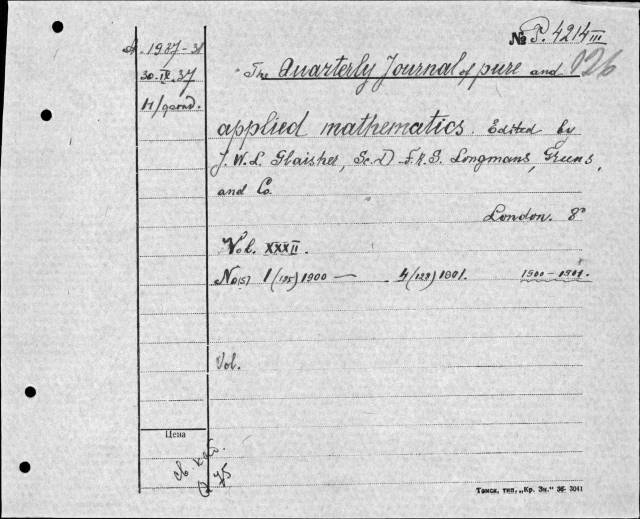 № P. 4214 III
A. 1937-31
30.IX.37
"The Quarterly Journal of pure and 026
applied mathematics. Edited by
J. W. L. Glaisher, Sc. D. F.R.S. Longmans, Green,
and Co.
London. 8°
Vol. XXXII.
No(s) 1 (125) 1900 — 4 (128) 1901. 1900-1901.
Vol.
Цена
св. каб.
Томск, тип. „Кр. Зн." 36- 3041